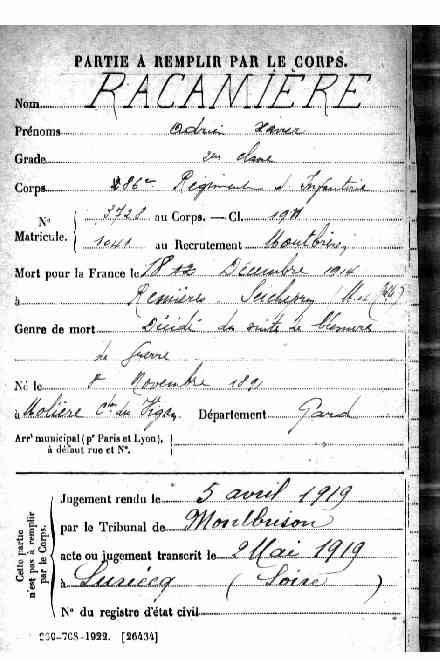 PARTIE À REMPLIR PAR LE CORPS.
Nom RACAMIÈRE
Prénoms Adrien Xavier
Grade 2me classe
Corps 286e Régiment d'Infanterie
N° Matricule. { 3728 au Corps. — Cl. 1911
1041 au Recrutement Montbrison
Mort pour la France le 18 Décembre 1914
à Remières Seicheprey
Genre de mort Décédé des suites de blessures
de guerre
Né le 8 Novembre 189
à Molière Con du Vigan Département Gard
Arrt municipal (pr Paris et Lyon),
à défaut rue et N°.
Cette partie n'est pas à remplir par le Corps.
Jugement rendu le 5 avril 1919
par le Tribunal de Montbrison
acte ou jugement transcrit le 2 Mai 1919
à Luriecq (Loire)
N° du registre d'état civil
[26434]